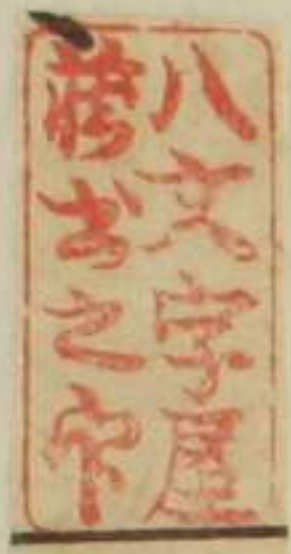 八文字屋
藏書之印